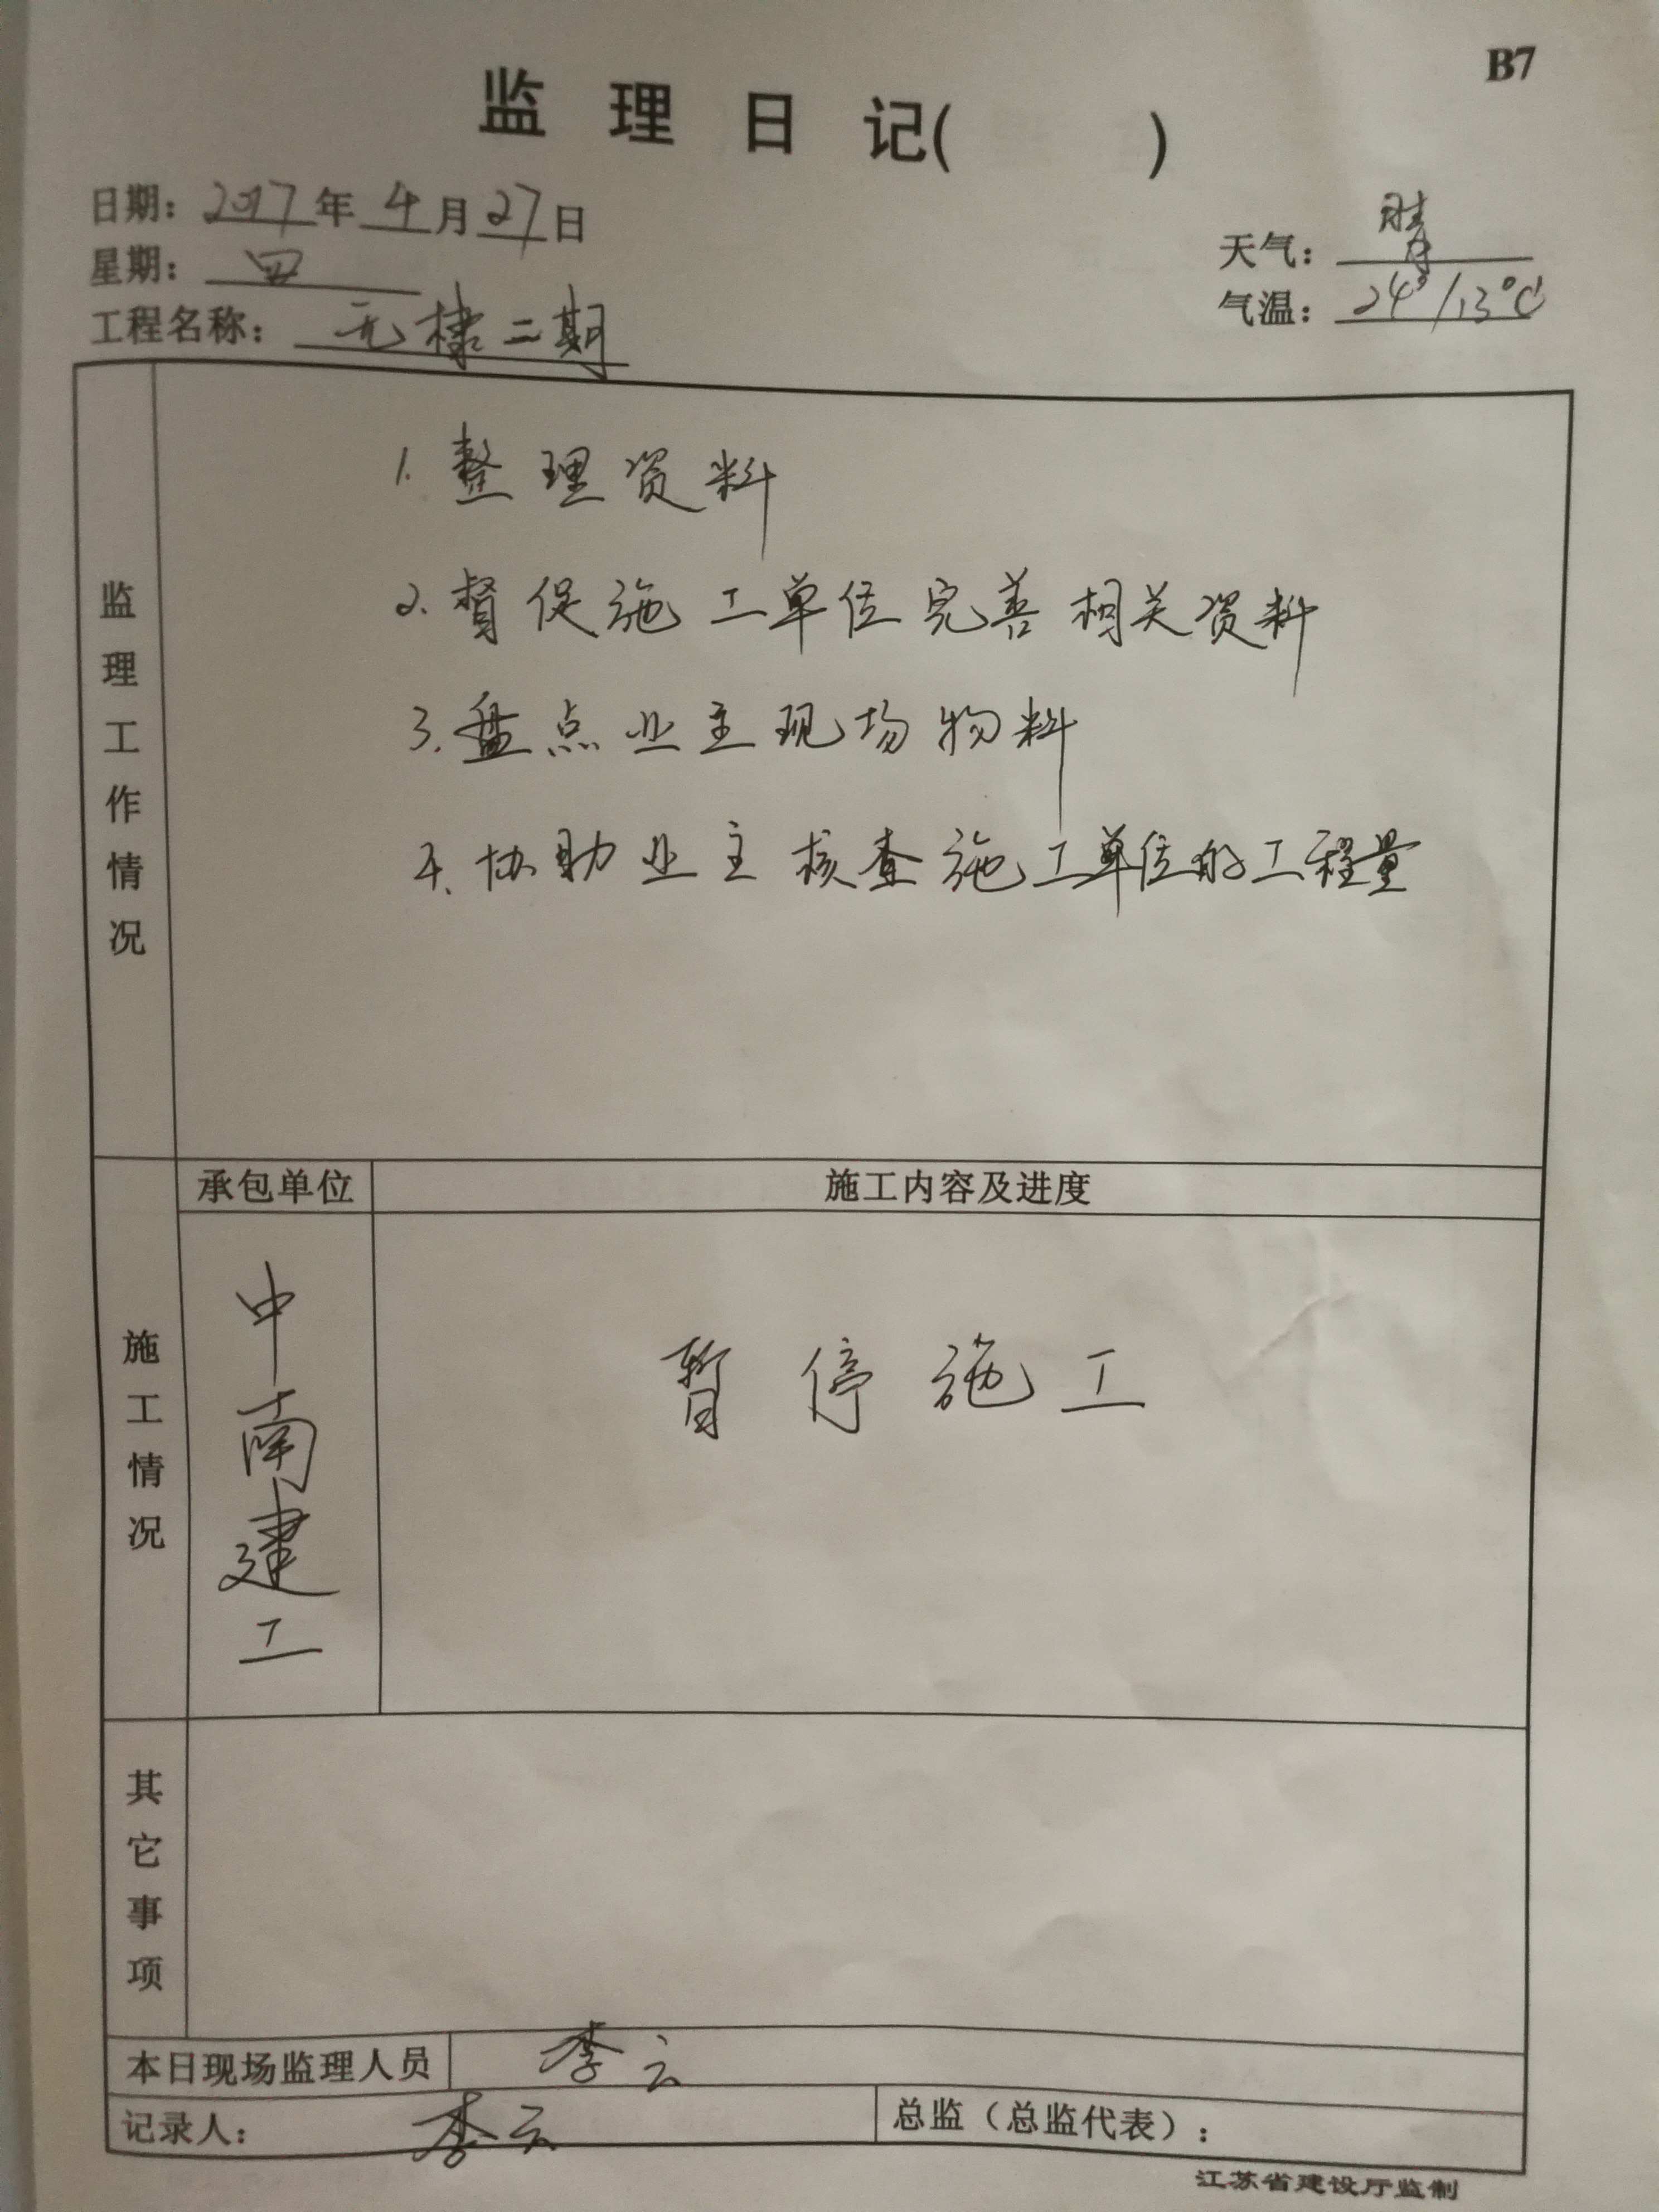 B7
监理日记( )
日期：2017年4月27日
星期：四
天气：晴
工程名称：无棣二期
气温：24°/13℃
监理工作情况
1. 整理资料
2. 督促施工单位完善相关资料
3. 盘点业主现场物料
4. 协助业主核查施工单位的工程量
施工情况
承包单位
施工内容及进度
中南建工
暂停施工
其它事项
本日现场监理人员 李云
记录人： 李云
总监（总监代表）：
江苏省建设厅监制